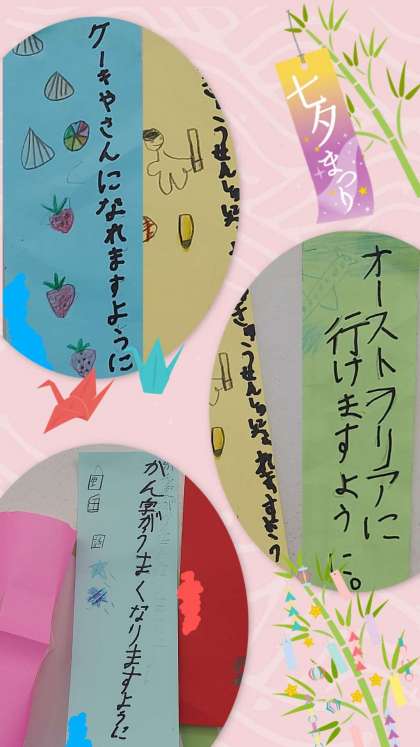 七夕まつり
ケーきやさんになれますように
きゅうせんしゅ
オーストラリアに
行けますように。
きゅうせんしゅ れますよう
うまくなりますように